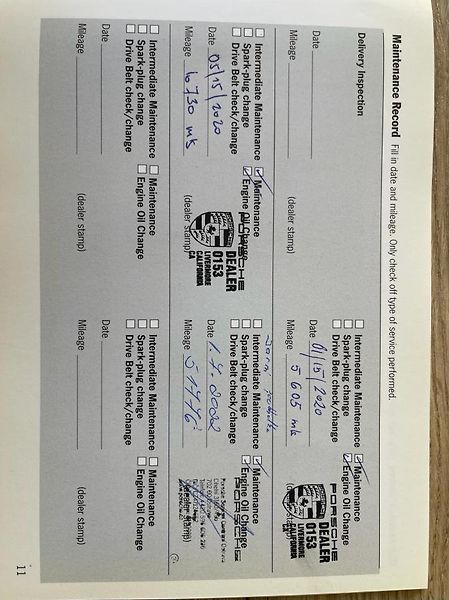 Maintenance Record Fill in date and mileage. Only check off type of service performed.
Delivery Inspection
Date
Mileage
(dealer stamp)
Intermediate Maintenance
Maintenance
Spark-plug change
Engine Oil Change
Drive Belt check/change
Date 01/15/2020
Mileage 5 605
PORSCHE
DEALER
0153
LIVERMORE
CALIFORNIA
Intermediate Maintenance
Maintenance
Spark-plug change
Engine Oil Change
Drive Belt check/change
Date 05/15/2020
Mileage 6730
(dealer stamp)
PORSCHE
DEALER
0153
LIVERMORE
CALIFORNIA
CA
Intermediate Maintenance
Maintenance
Spark-plug change
Engine Oil Change
Drive Belt check/change
Date 1.7.2022
Mileage
PORSCHE
(dealer stamp)
Intermediate Maintenance
Maintenance
Spark-plug change
Engine Oil Change
Drive Belt check/change
Date
Mileage
(dealer stamp)
Intermediate Maintenance
Maintenance
Spark-plug change
Engine Oil Change
Drive Belt check/change
Date
Mileage
(dealer stamp)
11